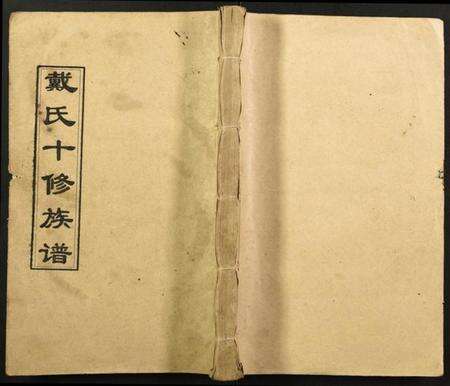 戴氏十修族谱